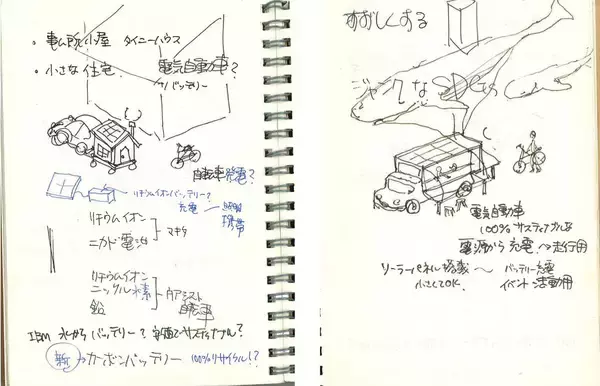 ・事務所小屋 タイニーハウス
・小さな住宅
電気自動車?
バッテリー
自転車発電?
リチウムイオンバッテリー?
充電 ― 照明
携帯
リチウムイオン
ニカド電池
マキタ
リチウムイオン
ニッケル水素
鉛
アシスト
自転車
IBM 水から バッテリー? 安価でサスティナブル?
新 → カーボンバッテリー 100%リサイクル!?
すずしくする
ジャンクなSDGs
電気自動車
100%サスティナブルな
電源から充電 〜走行用
ソーラーパネル搭載〜 バッテリー充電
小さくてOK. イベント活動用